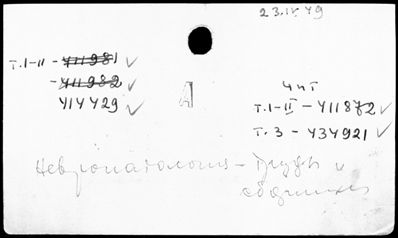 23.IV.79
т.I-II - 411981 ✓
- 411982 ✓
414429 ✓
А
Чит
т.I-II - 411872 ✓
т.3 - 434921 ✓
Невропатология - Труды и
сборники